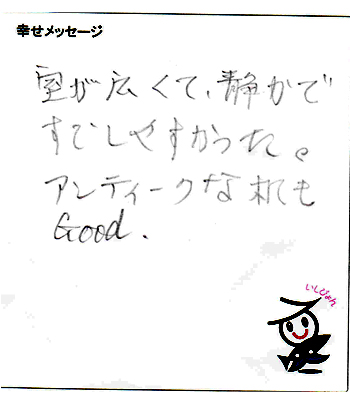 幸せメッセージ
室が広くて、静かで
すごしやすかった。
アンティークな机も
Good.
いしぴょん